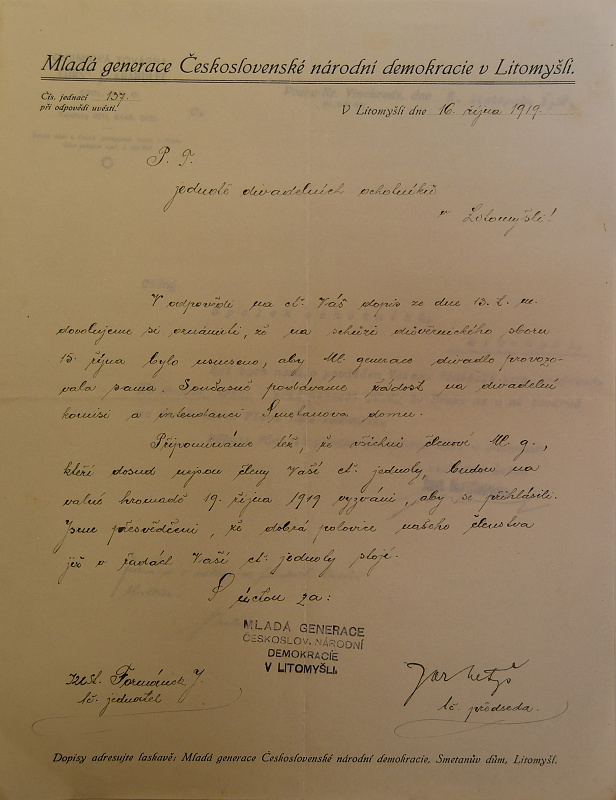 Mladá generace Československé národní demokracie v Litomyšli.
Čís. jednací 137.
při odpovědi uvésti.
V Litomyšli dne 16. října 1919
P. T.
jednotě divadelních ochotníků
v Litomyšli!
V odpovědi na ct. Váš dopis ze dne 13. t. m.
dovolujeme si oznámiti, že na schůzi důvěrnického sboru
15. října bylo usneseno, aby Ml. generace divadlo provozo-
vala sama. Současně podáváme žádost na divadelní
komisi a intendanci Smetanova domu.
Připomínáme též, že všichni členové Ml. g.,
kteří dosud nejsou členy Vaší ct. jednoty, budou na
valné hromadě 19. října 1919 vyzváni, aby se přihlásili.
Jsme přesvědčeni, že dobrá polovice našeho členstva
již v řadách Vaší ct. jednoty stojí.
S úctou za:
MLADÁ GENERACE
ČESKOSLOV. NÁRODNÍ
DEMOKRACIE
V LITOMYŠLI.
Formánek J.
tč. jednatel
tč. předseda.
Dopisy adresujte laskavě: Mladá generace Československé národní demokracie, Smetanův dům, Litomyšl.